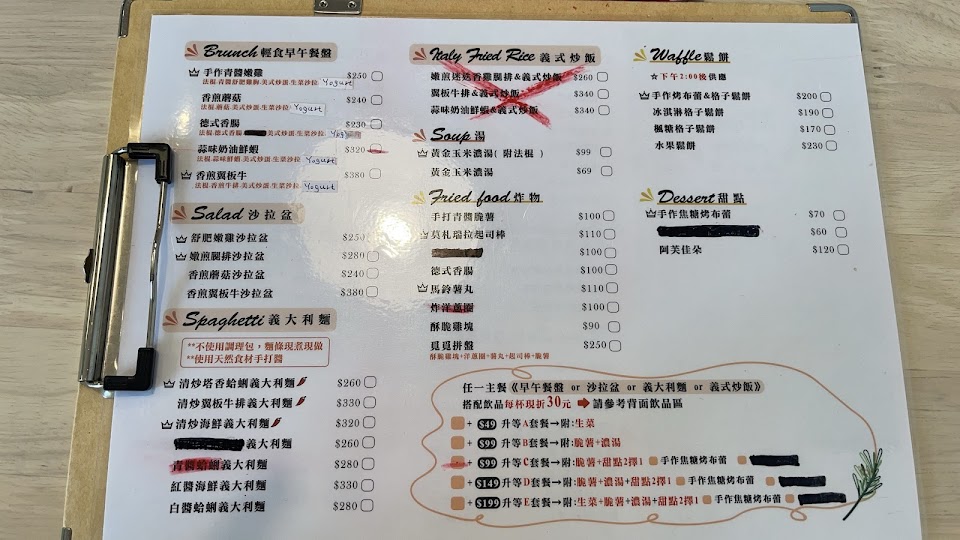 Brunch 輕食早午餐盤
手作青醬嫩雞 $250
法棍.青醬舒肥雞胸.美式炒蛋.生菜沙拉. Yogurt
香煎蘑菇 $240
法棍.蘑菇.美式炒蛋.生菜沙拉. Yogurt
德式香腸 $230
法棍.德式香腸 美式炒蛋.生菜沙拉. Yogurt
蒜味奶油鮮蝦 $320
法棍.蒜味鮮蝦.美式炒蛋.生菜沙拉. Yogurt
香煎翼板牛 $380
法棍.香煎牛排.美式炒蛋.生菜沙拉. Yogurt
Salad 沙拉盆
舒肥嫩雞沙拉盆 $250
嫩煎腿排沙拉盆 $280
香煎蘑菇沙拉盆 $240
香煎翼板牛沙拉盆 $380
Spaghetti 義大利麵
**不使用調理包，麵條現煮現做
**使用天然食材手打醬
清炒塔香蛤蜊義大利麵 $260
清炒翼板牛排義大利麵 $330
清炒海鮮義大利麵 $320
義大利麵 $260
青醬蛤蜊義大利麵 $280
紅醬海鮮義大利麵 $330
白醬蛤蜊義大利麵 $280
Italy Fried Rice 義式炒飯
嫩煎迷迭香雞腿排&義式炒飯 $260
翼板牛排&義式炒飯 $340
蒜味奶油鮮蝦&義式炒飯 $340
Soup 湯
黃金玉米濃湯(附法棍) $99
黃金玉米濃湯 $69
Fried food 炸物
手打青醬脆薯 $100
莫札瑞拉起司棒 $110
$100
德式香腸 $100
馬鈴薯丸 $110
炸洋蔥圈 $100
酥脆雞塊 $90
覓覓拼盤 $250
酥脆雞塊+洋蔥圈+薯丸+起司棒+脆薯
Waffle 鬆餅
☆下午2:00後供應
手作烤布蕾&格子鬆餅 $200
冰淇淋格子鬆餅 $190
楓糖格子鬆餅 $170
水果鬆餅 $230
Dessert 甜點
手作焦糖烤布蕾 $70
$60
阿芙佳朵 $120
任一主餐《早午餐盤 or 沙拉盆 or 義大利麵 or 義式炒飯》
搭配飲品每杯現折30元 ➡ 請參考背面飲品區
+ $49 升等A套餐→附:生菜
+ $99 升等B套餐→附:脆薯+濃湯
+ $99 升等C套餐→附:脆薯+甜點2擇1 手作焦糖烤布蕾
+ $149 升等D套餐→附:脆薯+濃湯+甜點2擇1 手作焦糖烤布蕾
+ $199 升等E套餐→附:生菜+脆薯+濃湯+甜點2擇1 手作焦糖烤布蕾